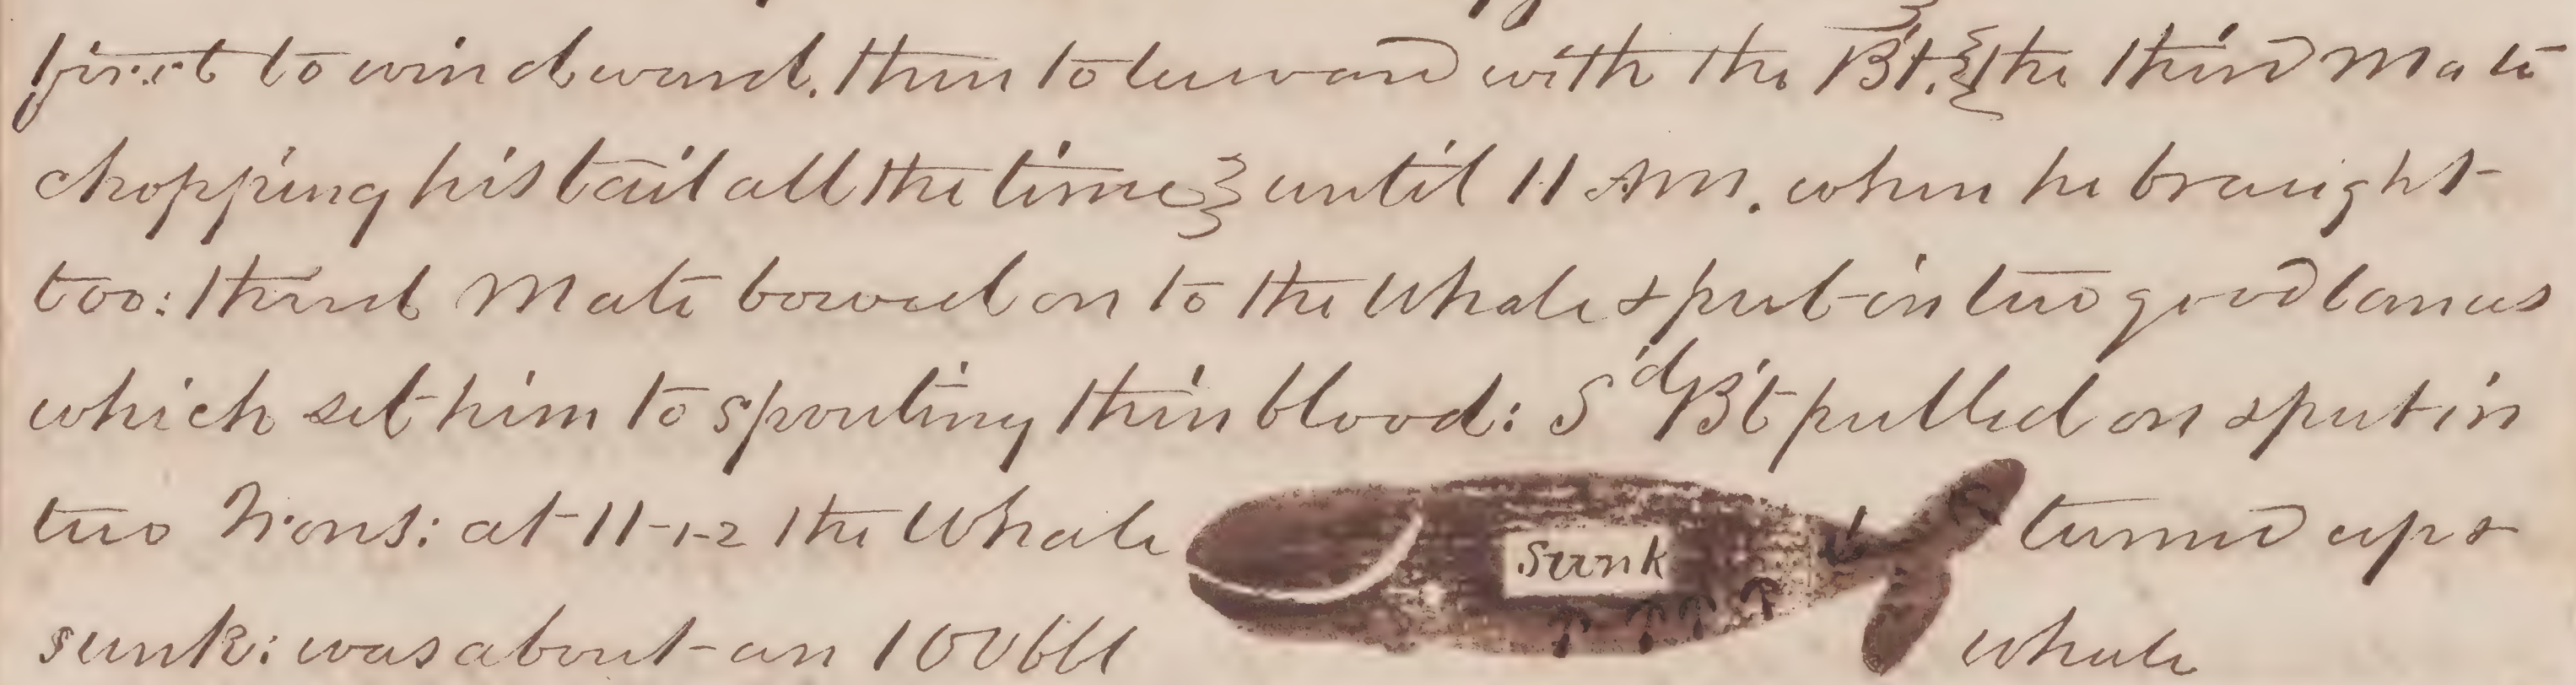 first to windward. then to leeward with the Bt. { the third Mate
chopping his tail all the time } until 11 AM. when he braught
too: third Mate bowed on to the Whale & put in two good lances
which set him to spouting thin blood: S'd B't pulled on & put in
two Irons: at 11-1-2 the Whale turned up &
Sunk
sunk: was about an 100 bbl whale